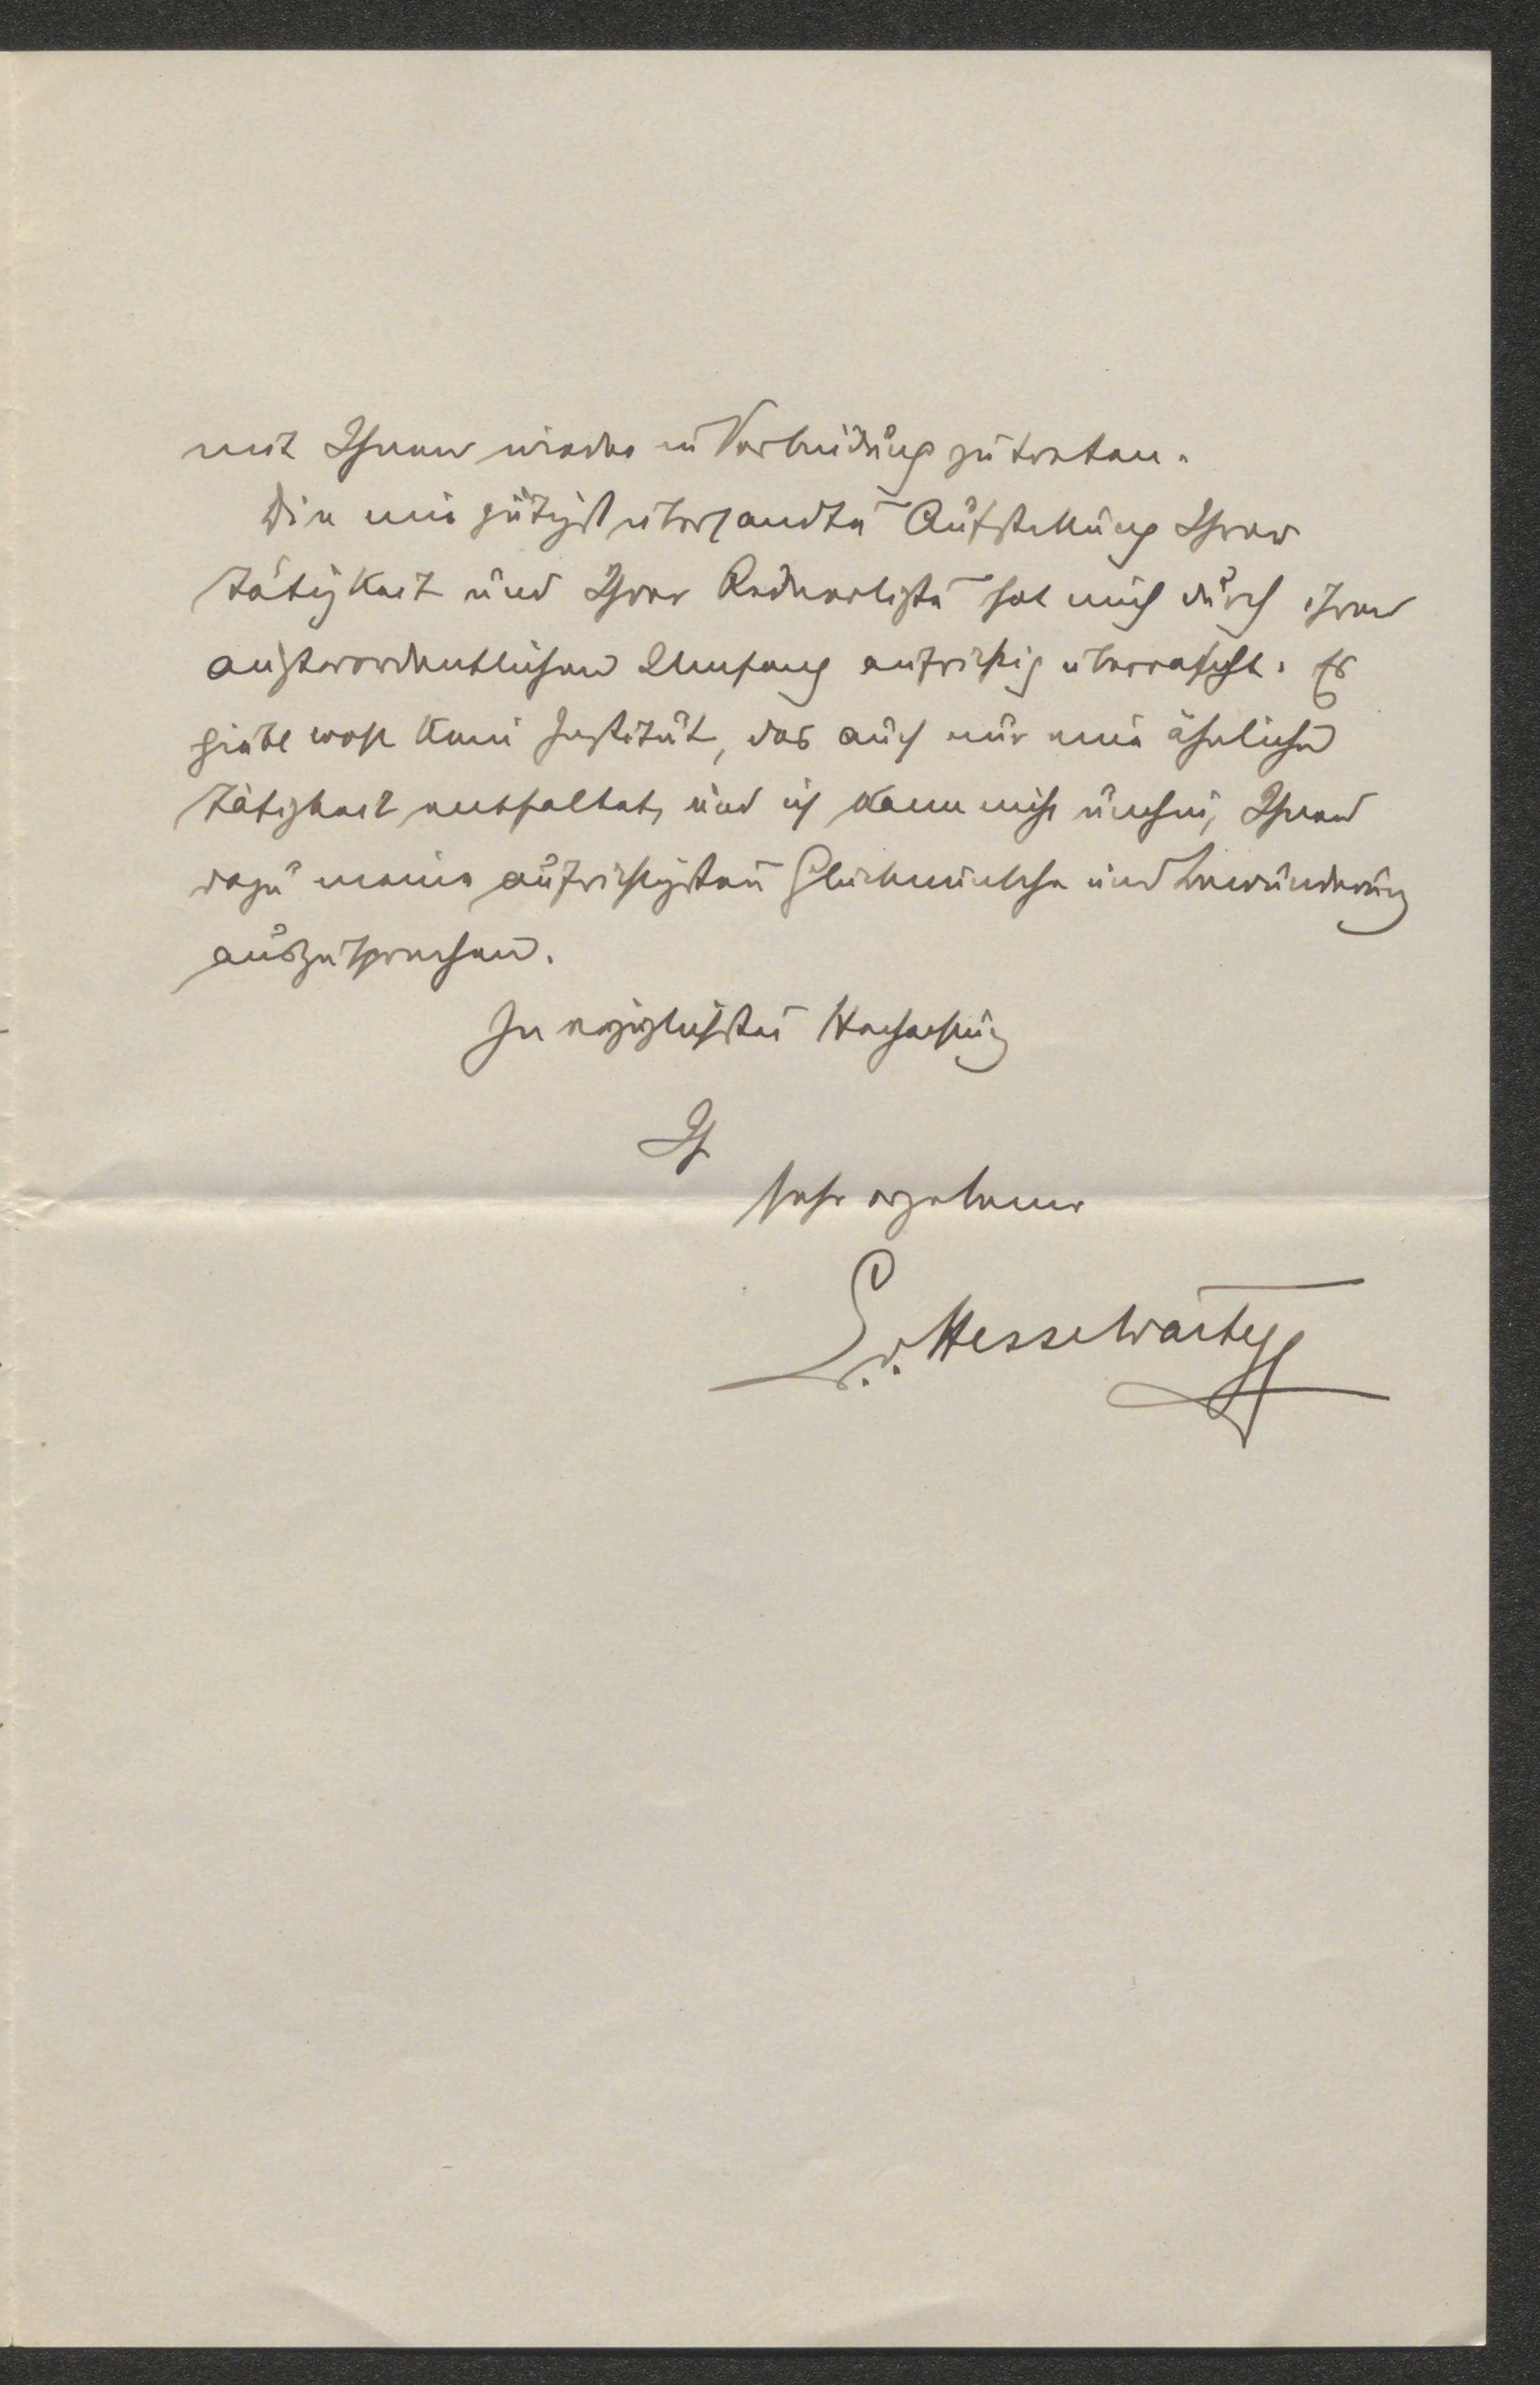 mit Ihnen wieder in Verbindung zu treten.
Die mir gütigst übersandte Aufstellung Ihrer
Tätigkeit und Ihrer Rednerliste hat mich durch ihren
außerordentlichen Umfang aufrichtig überrascht. Es
giebt wohl kein Institut, das auch nur eine ähnliche
Tätigkeit entfaltet, und ich kann nicht umhin, Ihnen
dazu meine aufrichtigsten Glückwünsche und Bewunderung
auszusprechen.
In vorzüglichster Hochachtung
Ihr
sehr ergebener
E. v. Hesse Wartegg